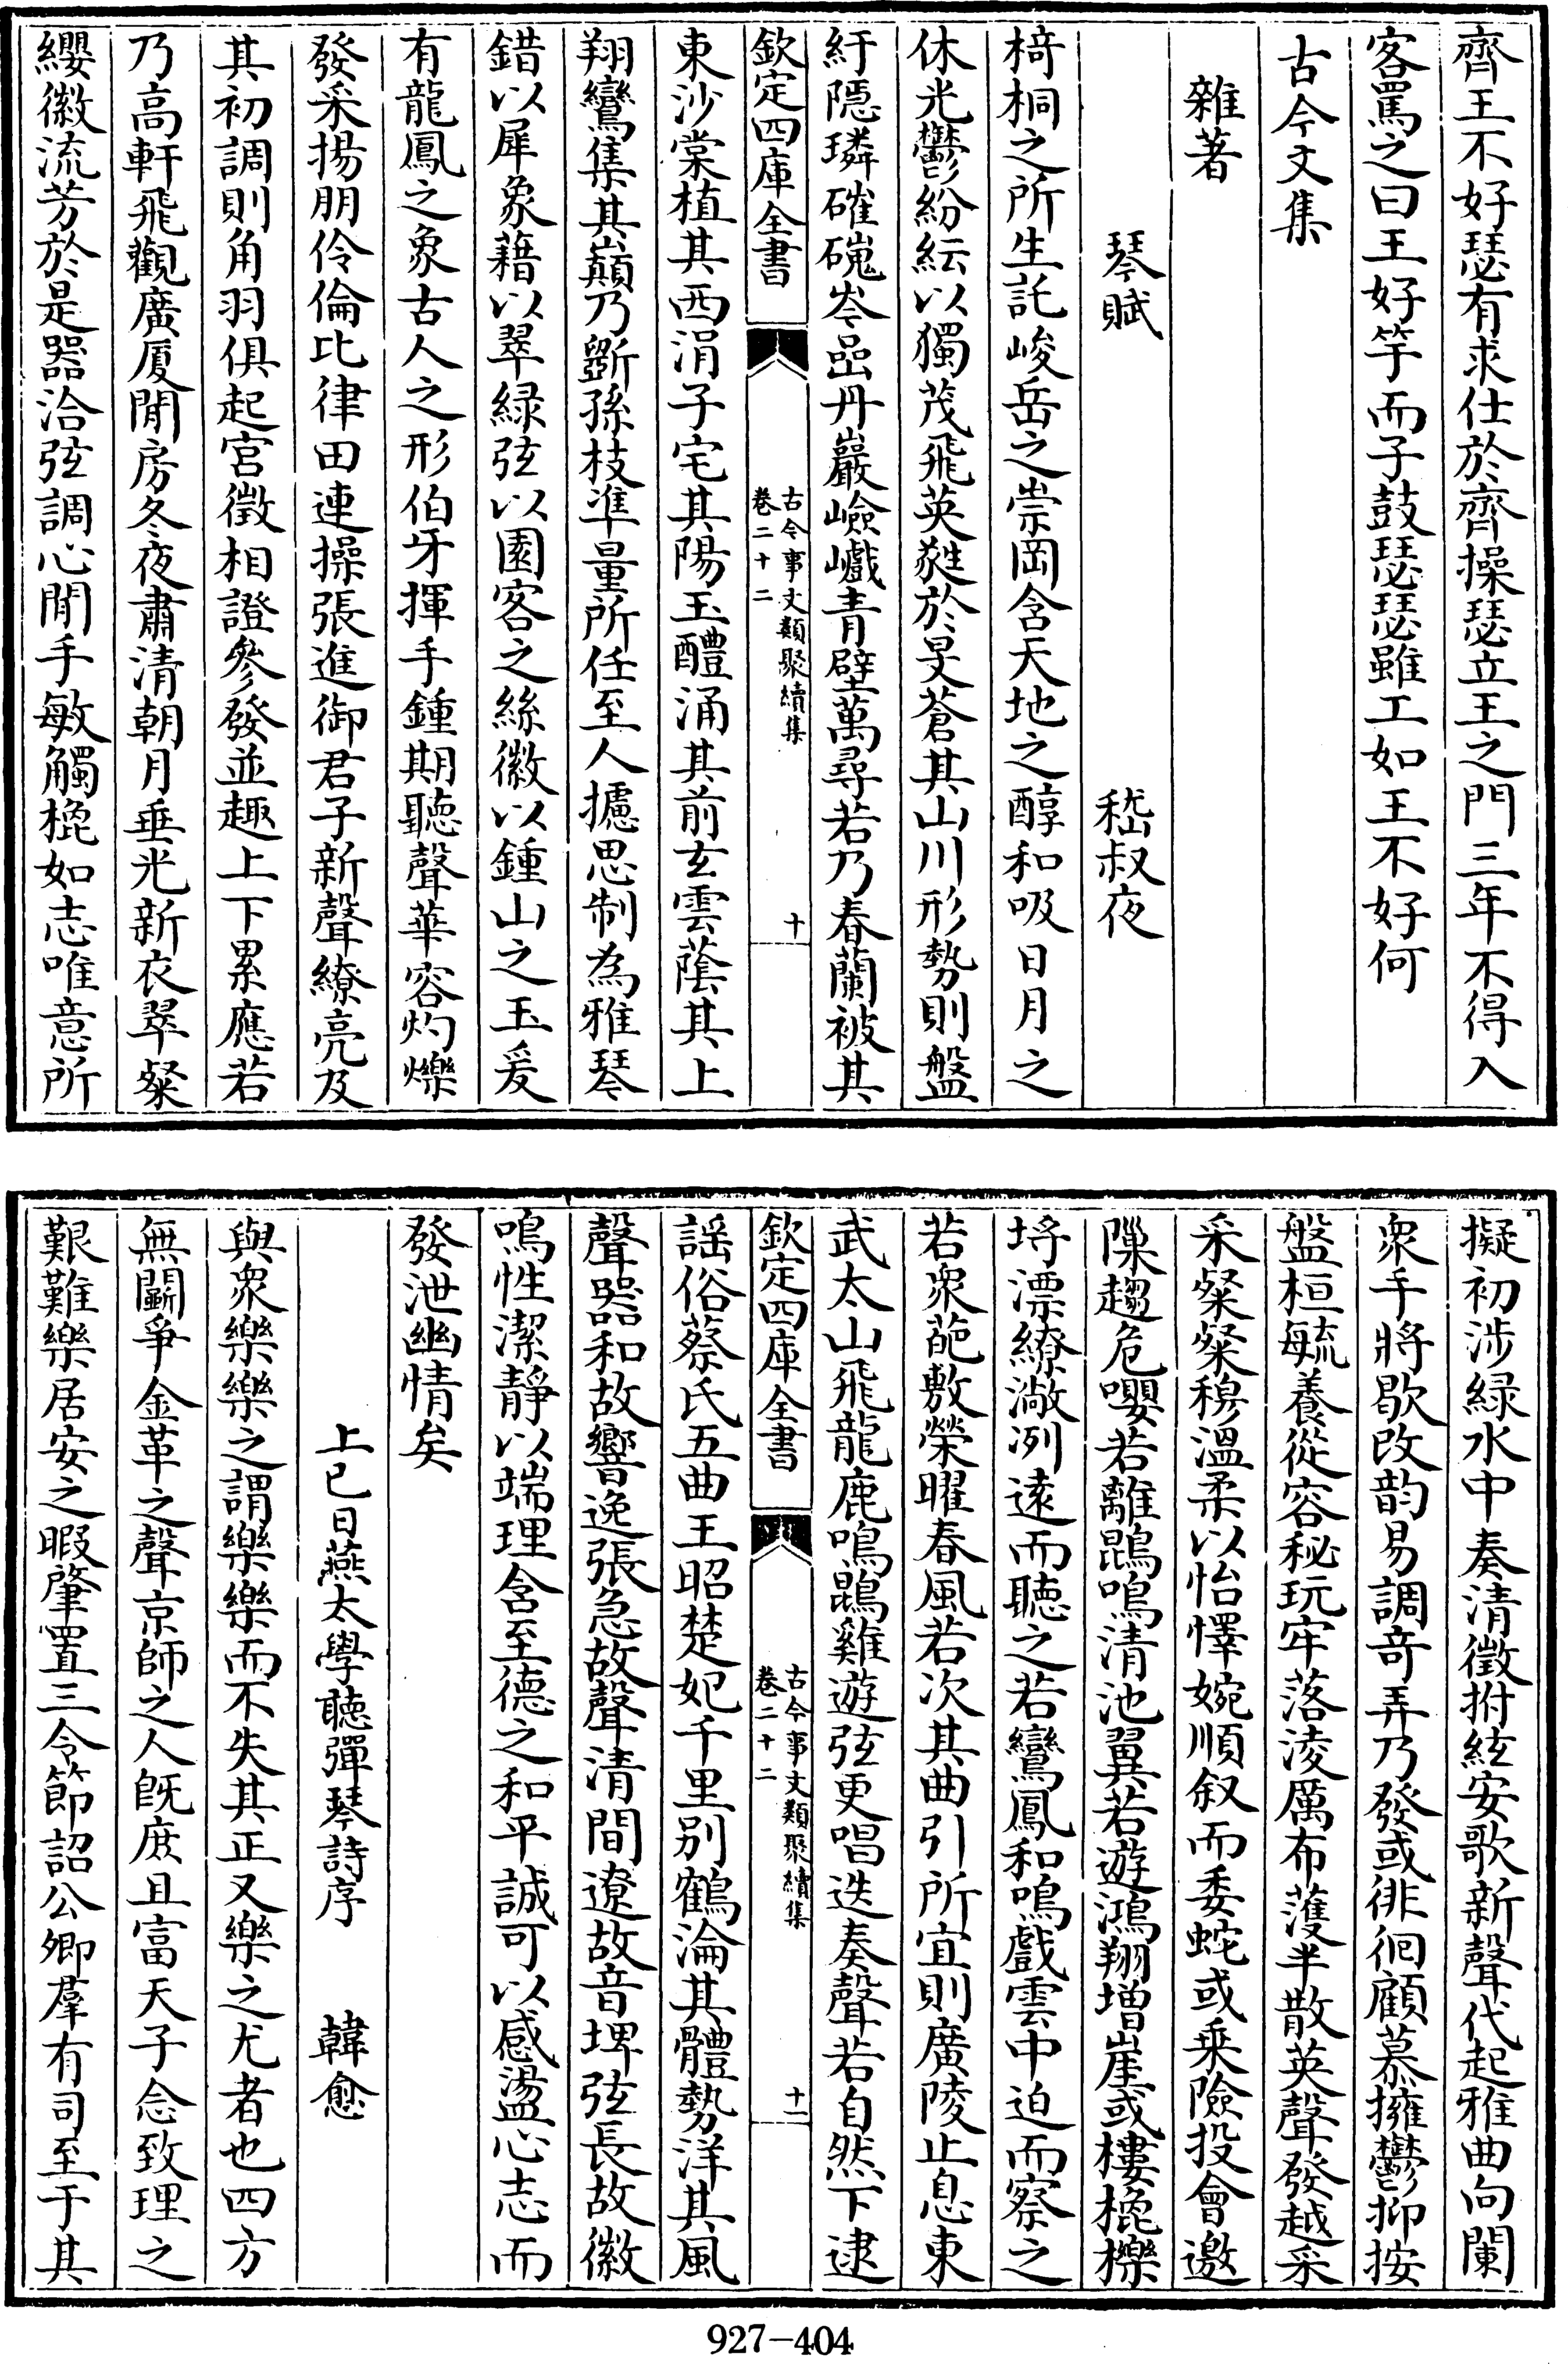 齊王不好瑟有求仕於齊操瑟立王之門三年不得入
客罵之曰王好竽而子鼓瑟瑟雖工如王不好何
古今文集
雜著
琴賦 嵇叔夜
椅桐之所生託峻岳之崇岡含天地之醇和吸日月之
休光鬱紛紜以獨茂飛英蕤於旻蒼其山川形勢則盤
紆隱璘磪磈岑嵒丹巖嶮巇青壁萬尋若乃春蘭被其
欽定四庫全書
古今事文類聚續集
卷二十二
十
東沙棠植其西涓子宅其陽玉醴涌其前玄雲蔭其上
翔鸞集其巔乃斵孫枝準量所任至人攄思制為雅琴
錯以犀象藉以翠緑弦以園客之絲徽以鍾山之玉爰
有龍鳳之象古人之形伯牙揮手鍾期聽聲華容灼爍
發采揚朋伶倫比律田連操張進御君子新聲繚亮及
其初調則角羽俱起宮徵相證參發並趣上下累應若
乃高軒飛觀廣厦閒房冬夜肅清朝月垂光新衣翠粲
纓徽流芳於是器洽弦調心閒手敏觸㧻如志唯意所
擬初涉緑水中奏清徵拊絃安歌新聲代起雅曲向闌
衆手將歇改韵易調奇弄乃發或徘徊顧慕擁鬱抑按
盤桓毓養從容秘玩牢落淩厲布護半散英聲發越采
采粲粲穆溫柔以怡懌婉順叙而委蛇或乘險投會邀
隟趨危嚶若離鵾鳴清池翼若遊鴻翔增崖或摟㧻櫟
埓漂繚㵼冽遠而聽之若鸞鳳和鳴戲雲中迫而察之
若衆葩敷榮曜春風若次其曲引所宜則廣陵止息東
武太山飛龍鹿鳴鵾雞遊弦更唱迭奏聲若自然下逮
欽定四庫全書
古今事文類聚續集
卷二十二
十一
謡俗蔡氏五曲王昭楚妃千里别鶴淪其體勢洋其風
聲器和故響逸張急故聲清間遼故音埤弦長故徽
鳴性潔靜以端理含至德之和平誠可以感盪心志而
發泄幽情矣
上巳日燕太學聽彈琴詩序 韓愈
與衆樂樂之謂樂樂而不失其正又樂之尤者也四方
無鬭爭金革之聲京師之人既庶且富天子念致理之
艱難樂居安之暇肇置三令節詔公卿羣有司至于其
927-404